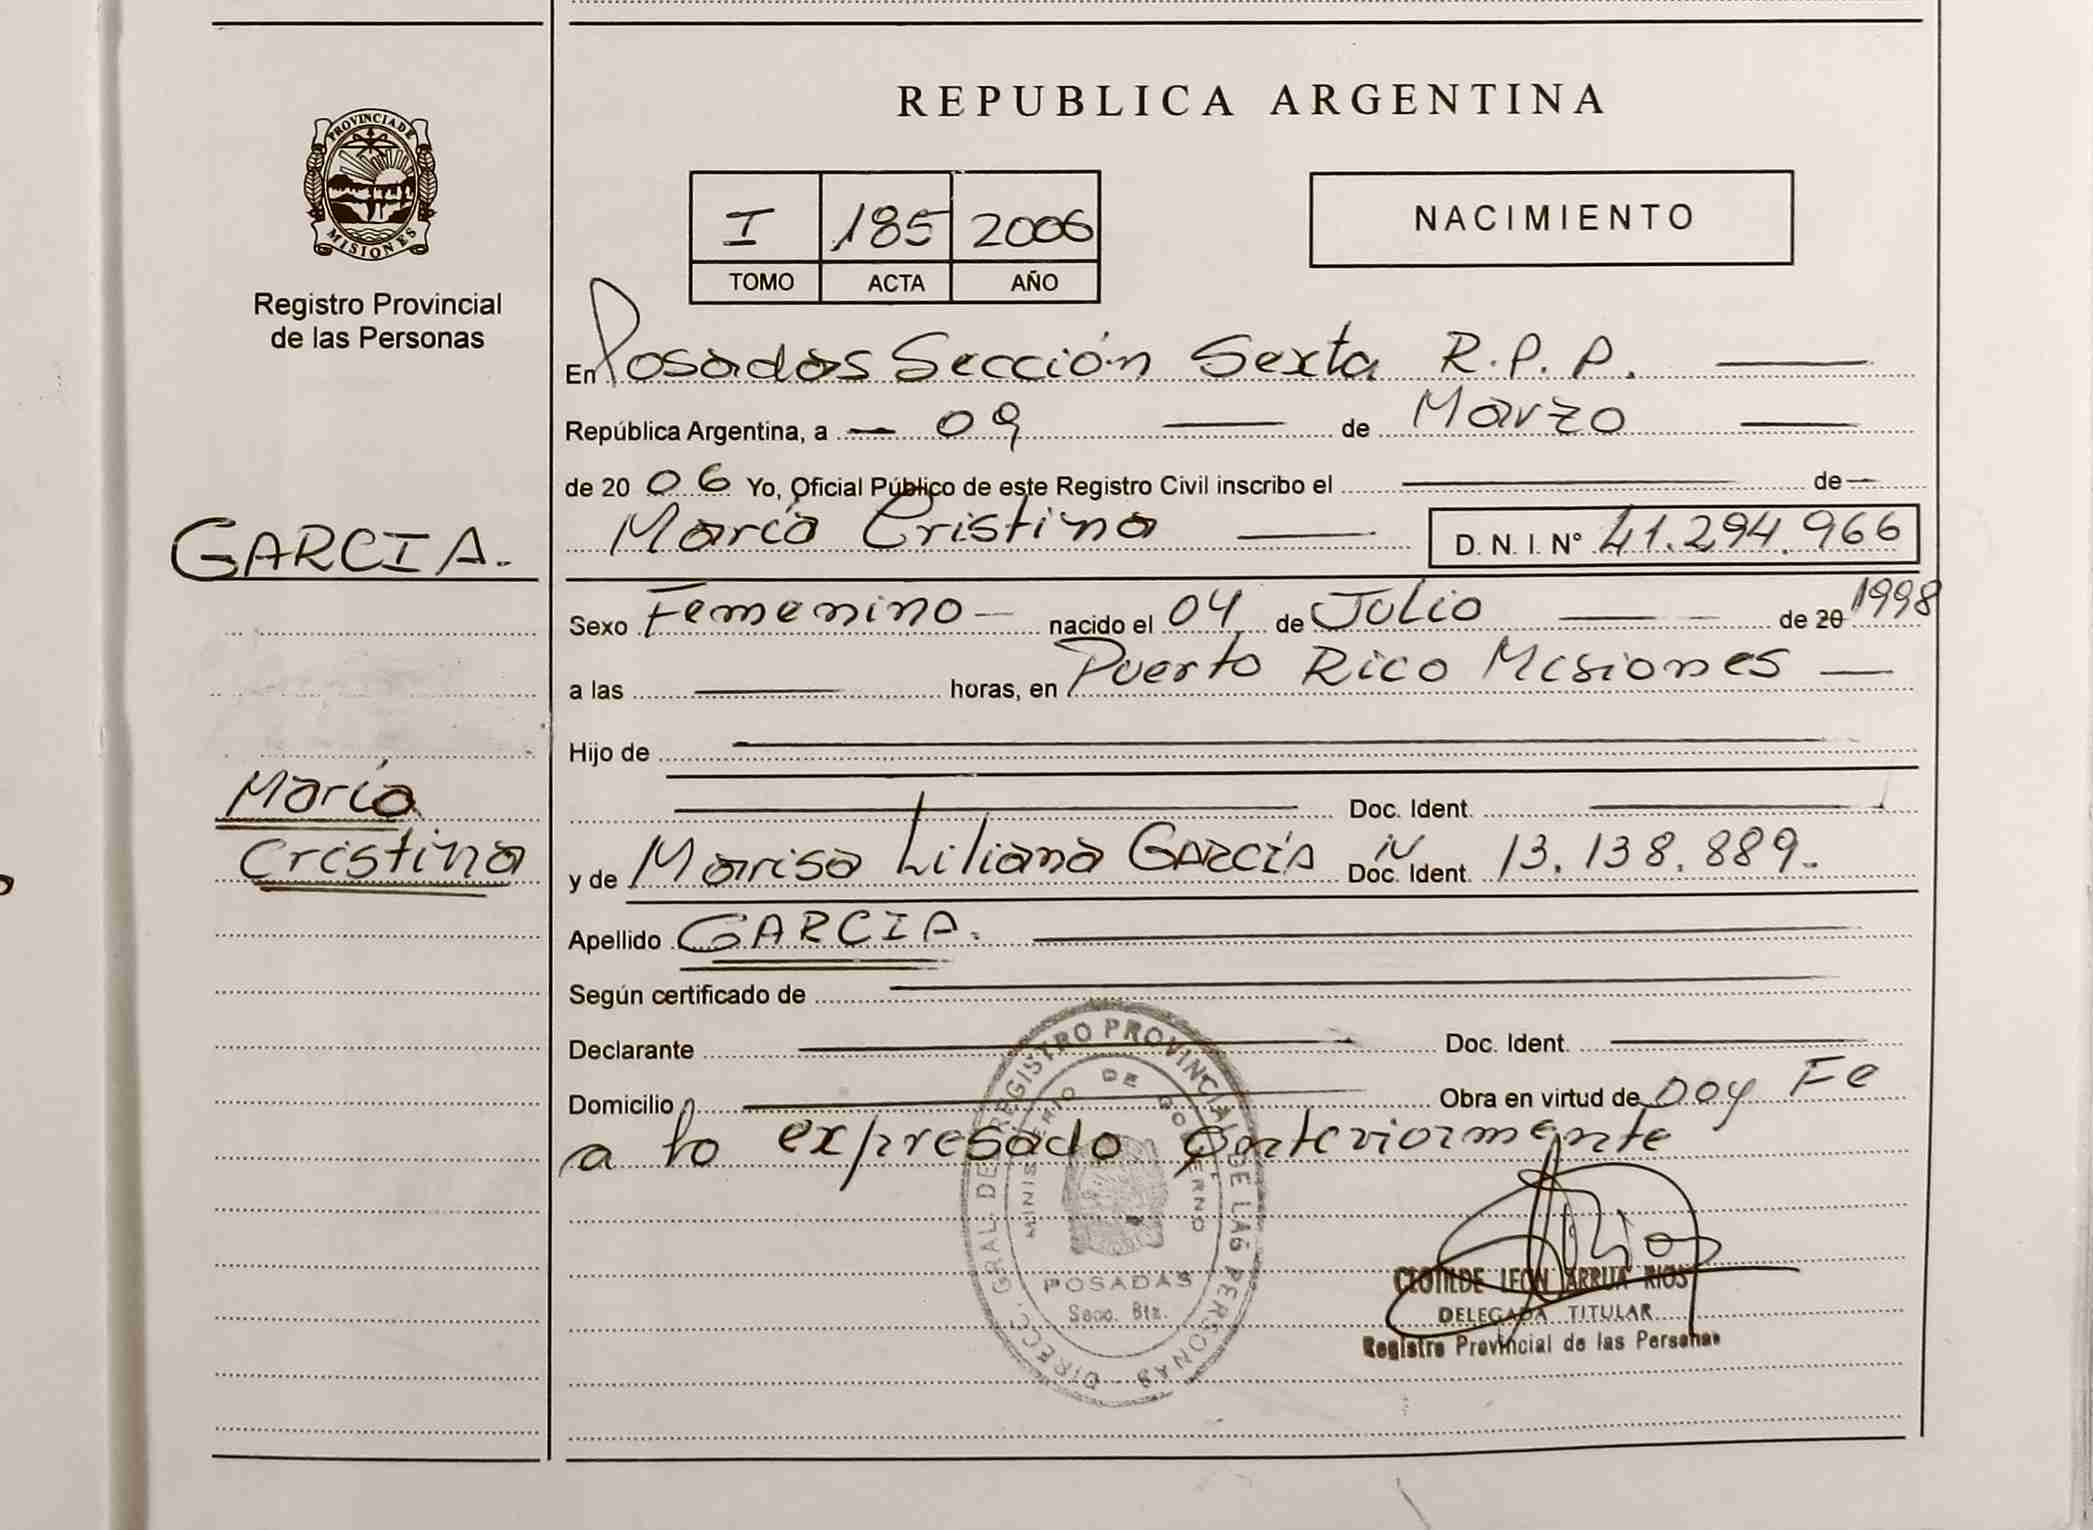 REPUBLICA ARGENTINA
PROVINCIA DE
MISIONES
Registro Provincial
de las Personas
I 185 2006
TOMO ACTA AÑO
NACIMIENTO
En Posadas Sección Sexta R.P.P.
República Argentina, a 09 de Marzo
de 20 06 Yo, Oficial Público de este Registro Civil inscribo el de
GARCIA.
María Cristina D. N. I. N° 41.294.966
Sexo Femenino nacido el 04 de Julio de 20 1998
a las horas, en Puerto Rico Misiones
Hijo de
María
Doc. Ident.
Cristina
y de Marisa Liliana GARCÍA Doc. Ident. N 13.138.889.
Apellido GARCIA.
Según certificado de
Declarante Doc. Ident.
Domicilio Obra en virtud de Doy Fe
a lo expresado anteriormente
DIRECC. GRAL. DE REGISTRO PROVINCIAL DE LAS PERSONAS
MINISTERIO DE GOBIERNO
POSADAS
Secc.
CLOTILDE LEON ARRUA RIOS
DELEGADA TITULAR
Registro Provincial de las Personas